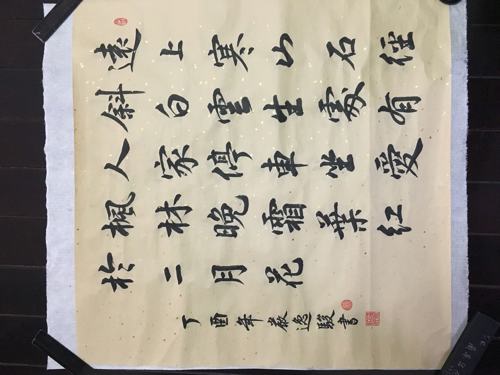 遠上寒山石徑
斜白雲生處有
人家停車坐愛
楓林晚霜葉紅
於二月花
丁酉年嚴逸駿書